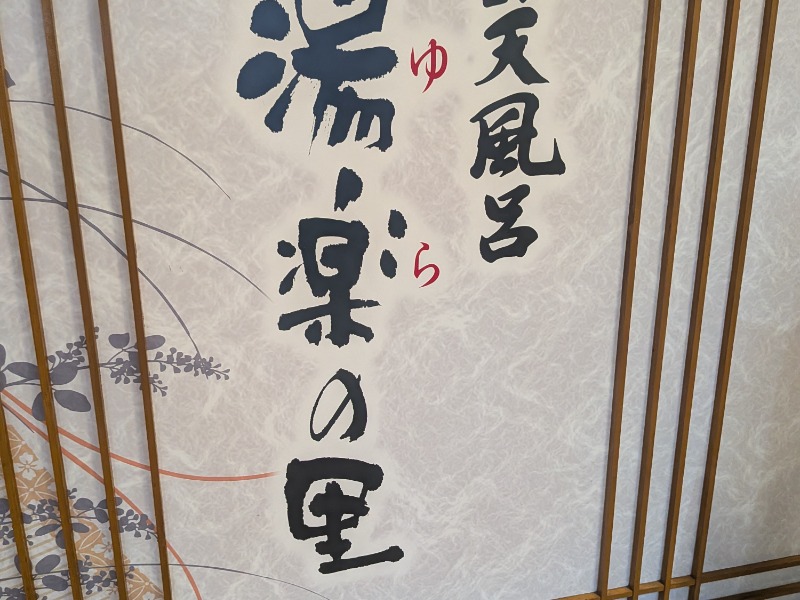 天風呂
湯楽の里
ゆ
ら